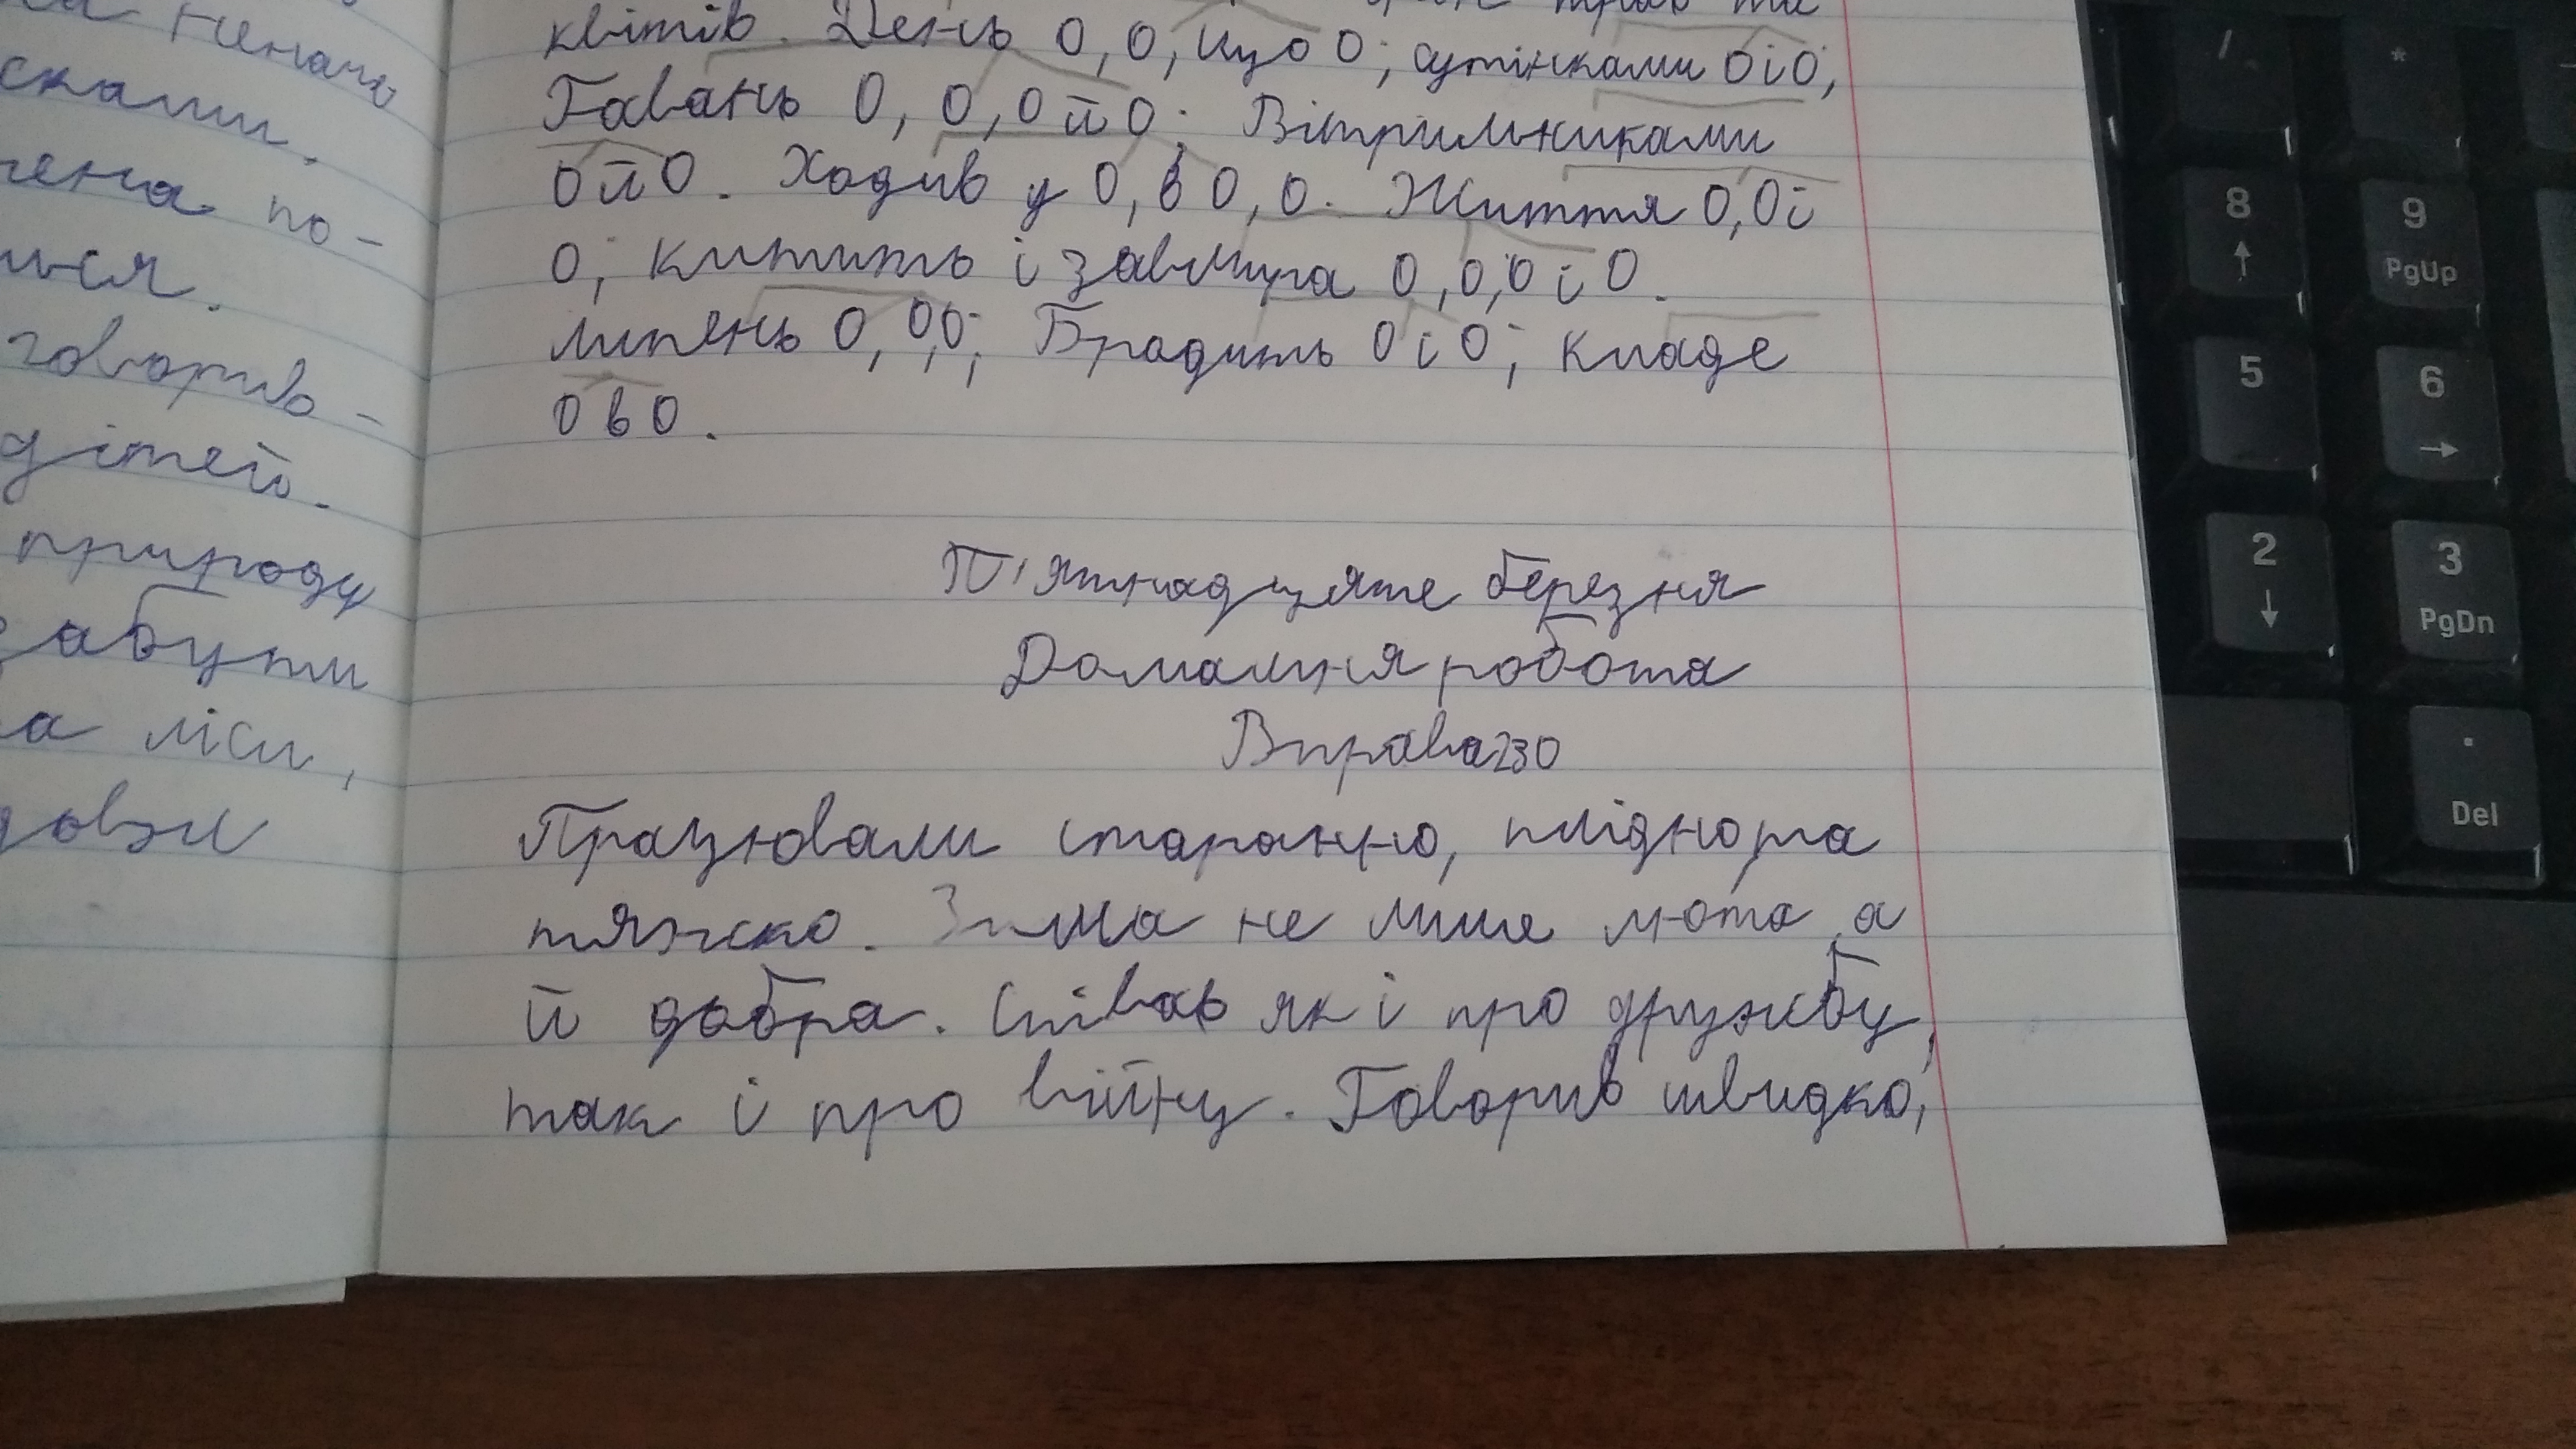 неначе
сками.
чена по-
ться.
говорив-
дітей.
природу
забути
на ліси,
квітів. День О, О, що О; сутінками О і О,
Гавань О, О, О й О; Вітрильниками
О й О. Ходив у О, в О, О. Життя О, О і
О; Китить і завмира О, О, О і О.
липень О, О, О; Бродить О і О; Кладе
О в О.
П'ятнадцяте березня
Домашня робота
Вправа 230
Працювали старанно, плідно та
тяжко. Зима не лише люта, а
й добра. Співав як і про дружбу,
так і про війну. Говорив швидко,
/ *
8 9 PgUp
5 6
2 3 PgDn
. Del